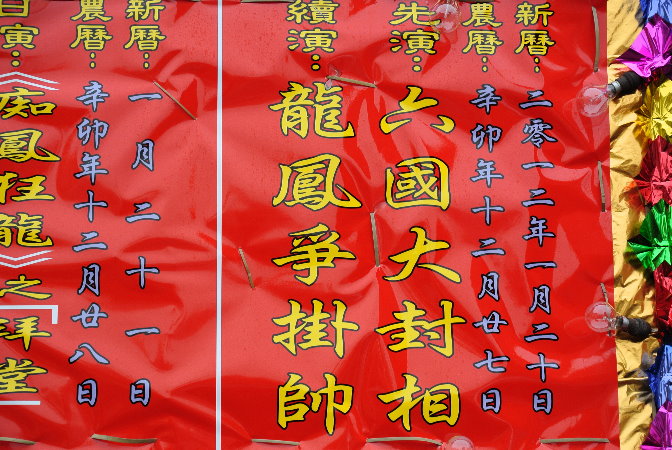 新曆：二零一二年一月二十日
農曆：辛卯年十二月廿七日
先演：六國大封相
續演：龍鳳爭掛帥
新曆：一月二十一日
農曆：辛卯年十二月廿八日
日寅：《痴鳳狂龍》之「拜堂」